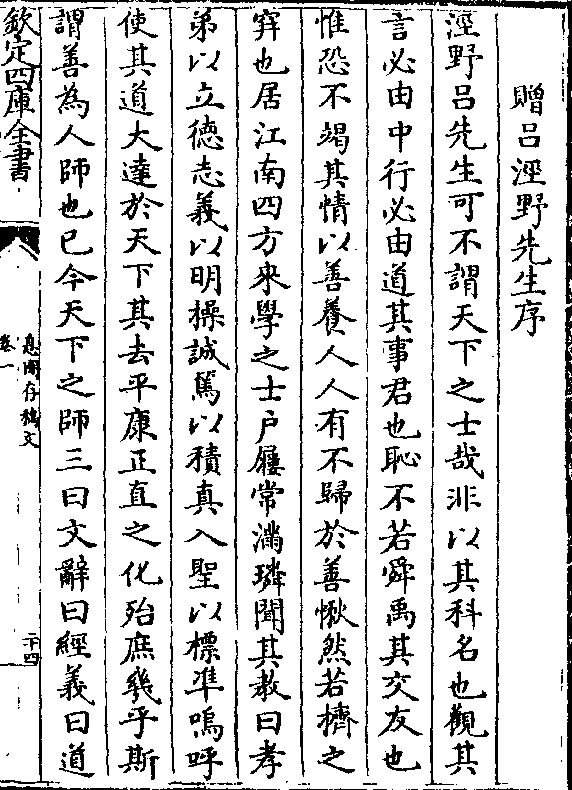 贈呂涇野先生序
涇野呂先生可不謂天下之士哉非以其科名也觀其
言必由中行必由道其事君也恥不若舜禹其交友也
惟恐不竭其情以善養人人有不歸於善愀然若擠之
穽也居江南四方來學之士戶屨常滿璘聞其教曰孝
弟以立德志義以明操誠篤以積真入聖以標準嗚呼
使其道大達於天下其去平康正直之化殆庶幾乎斯
謂善為人師也已今天下之師三曰文辭曰經義曰道
欽定四庫全書
息園存稿文
卷一
二十四